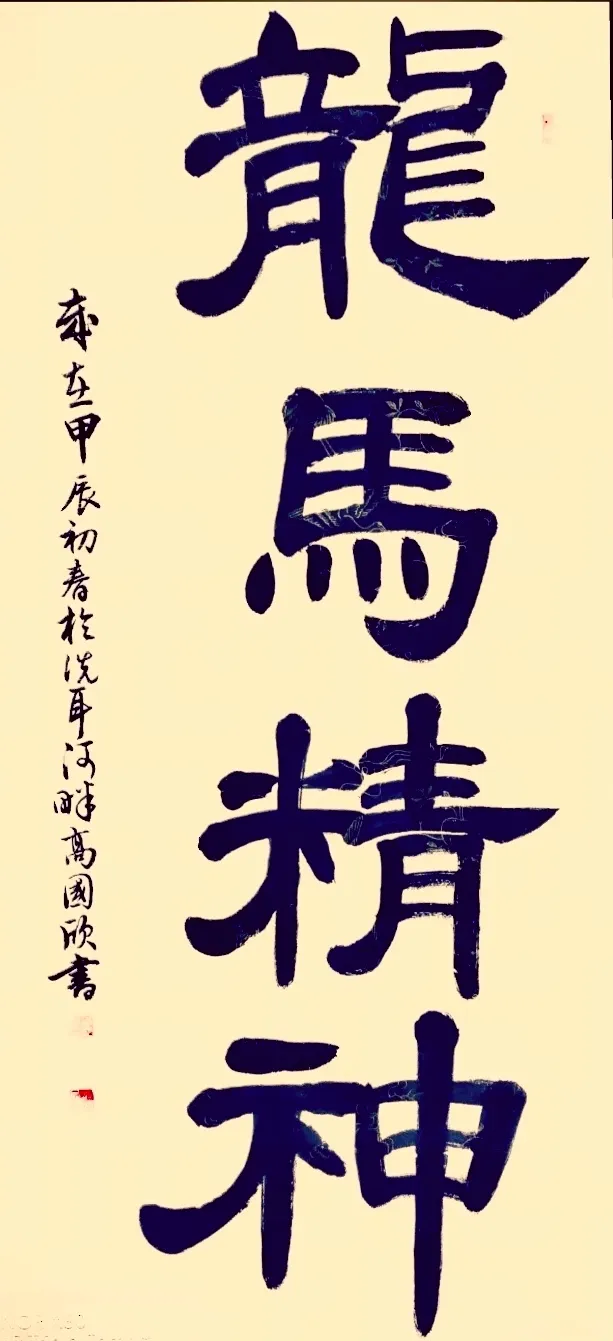 龍馬精神
歲在甲辰初春於洗耳河畔高國欣書